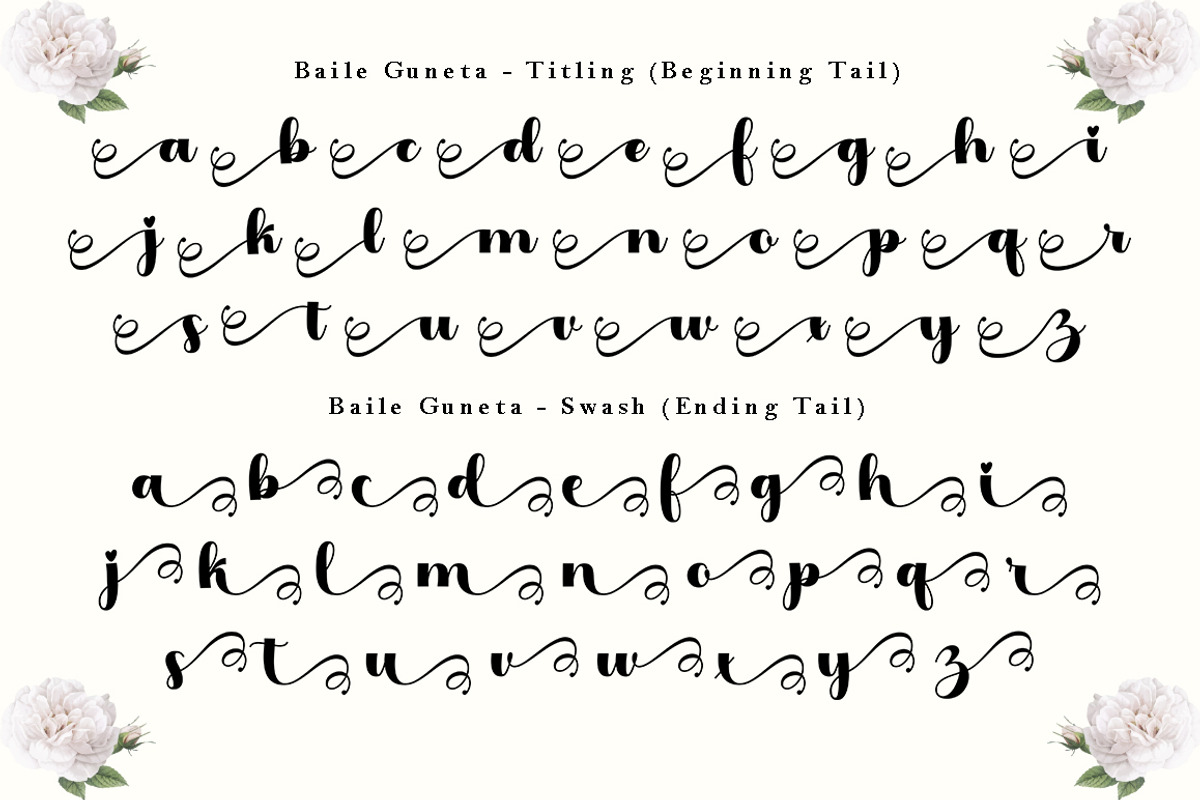 Baile Guneta - Titling (Beginning Tail)
a b c d e f g h i
j k l m n o p q r
s t u v w x y z
Baile Guneta - Swash (Ending Tail)
a b c d e f g h i
j k l m n o p q r
s t u v w x y z